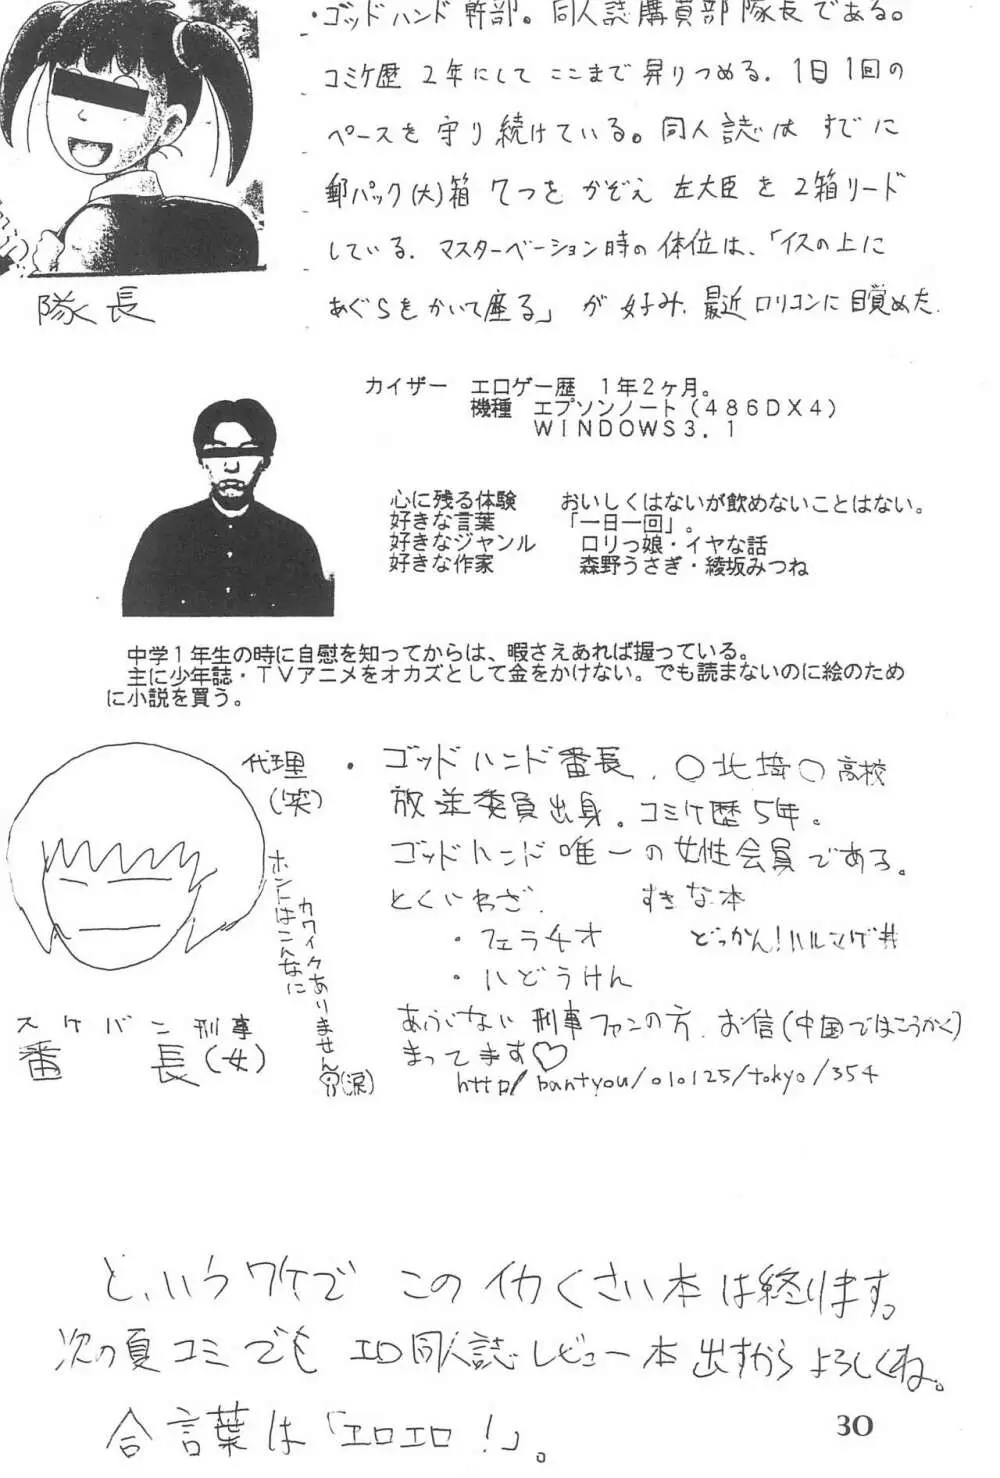 ・ゴッドハンド幹部。同人誌購買部隊長である。
コミケ歴2年にしてここまで昇りつめる。1日1回の
ペースを守り続けている。同人誌はすでに
郵パック(大)箱7つをかぞえ左大臣を2箱リード
している。マスターベーション時の体位は、「イスの上に
あぐらをかいて座る」が好み。最近ロリコンに目覚めた。
隊長
カイザー エロゲー歴 1年2ヶ月。
機種 エプソンノート(486DX4)
WINDOWS3.1
心に残る体験 おいしくはないが飲めないことはない。
好きな言葉 「一日一回」。
好きなジャンル ロリっ娘・イヤな話
好きな作家 森野うさぎ・綾坂みつね
中学1年生の時に自慰を知ってからは、暇さえあれば握っている。
主に少年誌・TVアニメをオカズとして金をかけない。でも読まないのに絵のため
に小説を買う。
代理
(笑)
ホントはこんなに
カワイクありません
(涙)
スケバン刑事
番長(女)
・ゴッドハンド番長。○北埼○高校
放送委員出身。コミケ歴5年。
ゴッドハンド唯一の女性会員である。
とくいわざ。 すきな本
・フェラチオ どっかん!ハルマゲ丼
・ハどうけん
あぶない刑事ファンの方、お信(中国ではこうかく)
まってます♡
http/bantyou/010125/tokyo/354
と、いうワケで このイカくさい本は終ります。
次の夏コミでも エロ同人誌レビュー本出すからよろしくね。
合言葉は「エロエロ!」。
30